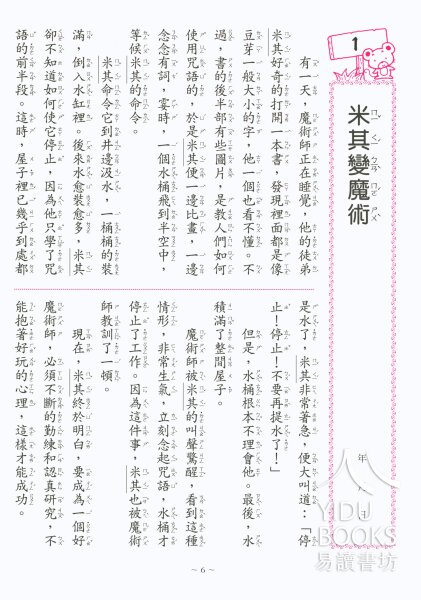 1
米其變魔術
年 月 日
有一天，魔術師正在睡覺，他的徒弟
米其好奇的打開一本書，發現裡面都是像
豆芽一般大小的字，他一個也看不懂。不
過，書的後半部有些圖片，是教人們如何
使用咒語的，於是米其便一邊比畫，一邊
念念有詞，霎時，一個水桶飛到半空中，
等候米其的命令。
米其命令它到井邊汲水，一桶桶的裝
滿，倒入水缸裡。後來水愈裝愈多，米其
卻不知道如何使它停止，因為他只學了咒
語的前半段。這時，屋子裡已幾乎到處都
是水了，米其非常著急，便大叫道：「停
止！停止！不要再提水了！」
但是，水桶根本不理會他。最後，水
積滿了整間屋子。
魔術師被米其的叫聲驚醒，看到這種
情形，非常生氣，立刻念起咒語，水桶才
停止了工作。因為這件事，米其也被魔術
師教訓了一頓。
現在，米其終於明白，要成為一個好
魔術師，必須不斷的勤練和認真研究，不
能抱著好玩的心理，這樣才能成功。
~ 6 ~
YIDU
BOOKS
易讀書坊